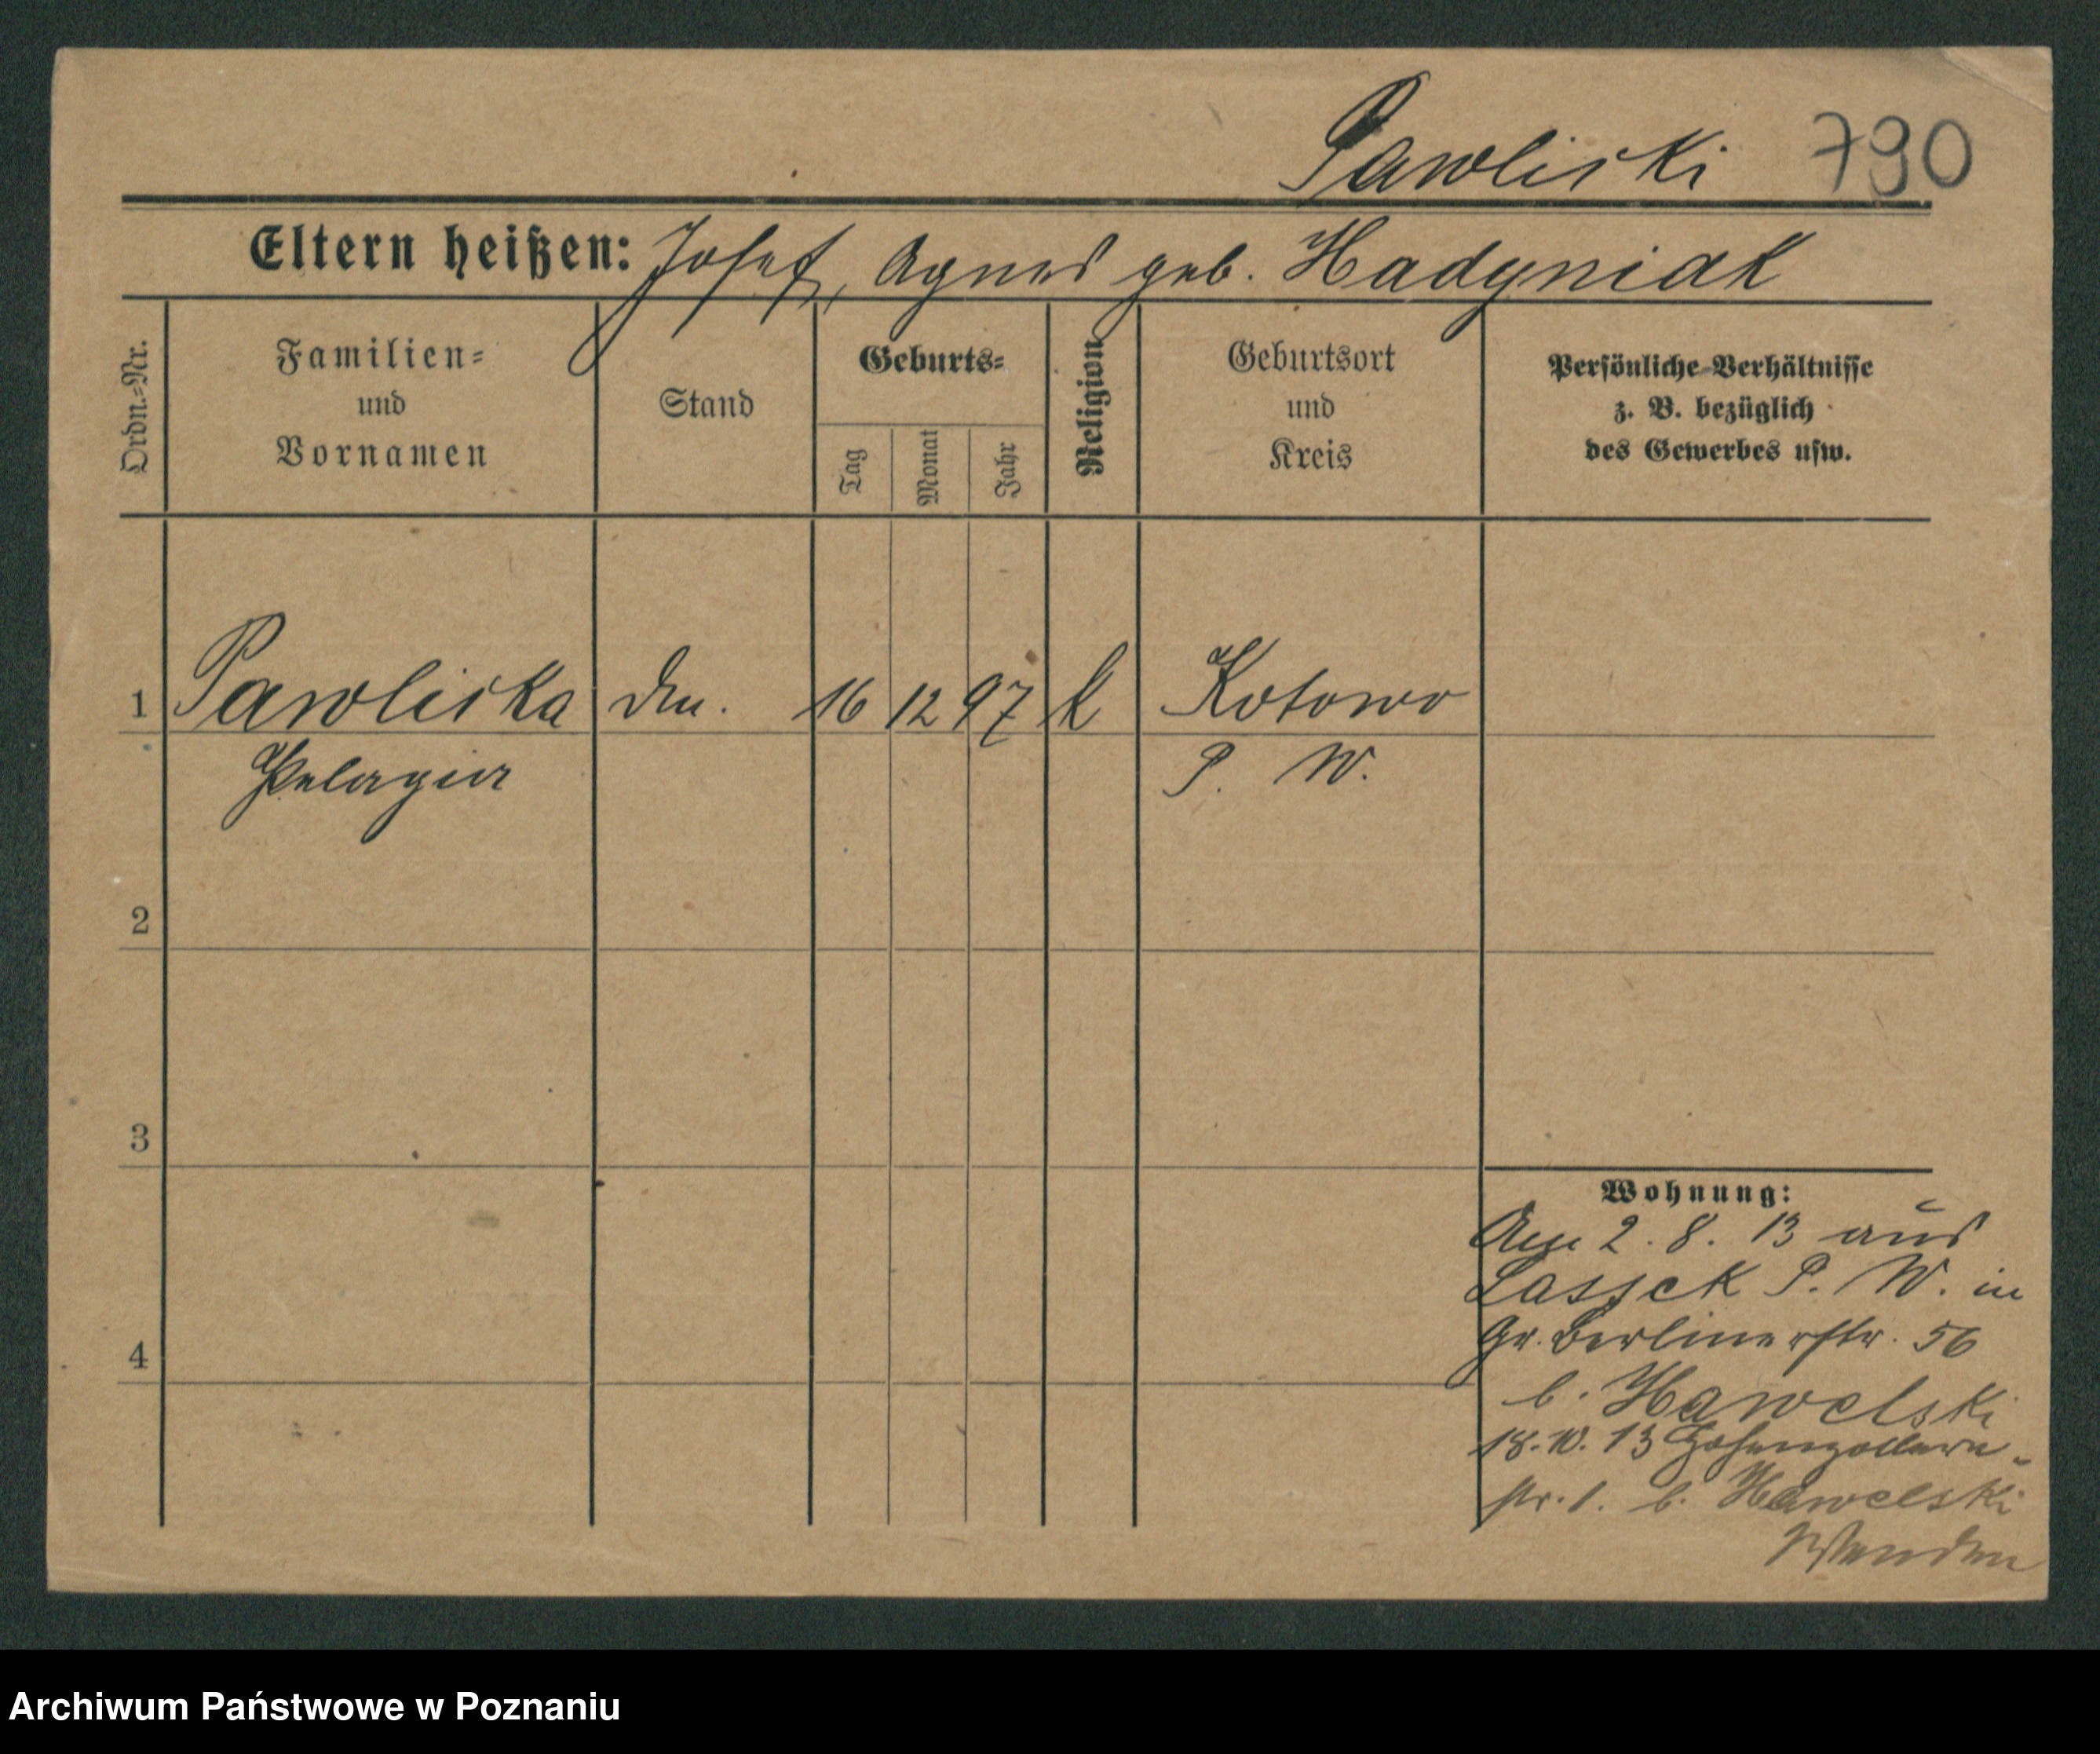 Pawliski 790
Eltern heißen: Josef, Agnes geb. Hadyniak
Ordn.-Nr.
Familien-
und
Vornamen
Stand
Geburts-
Tag
Monat
Jahr
Religion
Geburtsort
und
Kreis
Persönliche Verhältnisse
z. B. bezüglich
des Gewerbes usw.
1 Pawliska 16 12 97 k Kotowo
Pelagia P. W.
2
3
4
Wohnung:
2. 8. 13 aus
Lassek P. W. in
Gr. Berlinerstr. 56
b. Hawelski
18. 10. 13 Hohenzollern-
str. 1. b. Hawelski
Wenden
Archiwum Państwowe w Poznaniu